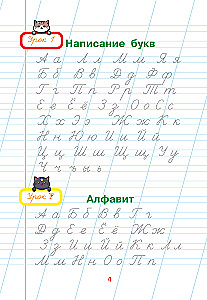 Урок 1
Написание букв
А а Л л М м Я я
Б б В в Д д Ф ф
Г г П п Р р Т т
Е е Ё ё З з О о С с
Х х Э э Ж ж К к
Н н Ю ю И и Й й
Ц ц Ш ш Щ щ У у
Ч ч ъ ы ь
Урок 2
Алфавит
А а Б б В в Г г
Д д Е е Ё ё Ж ж
З з И и Й й К к Л л
М м Н н О о П п
4